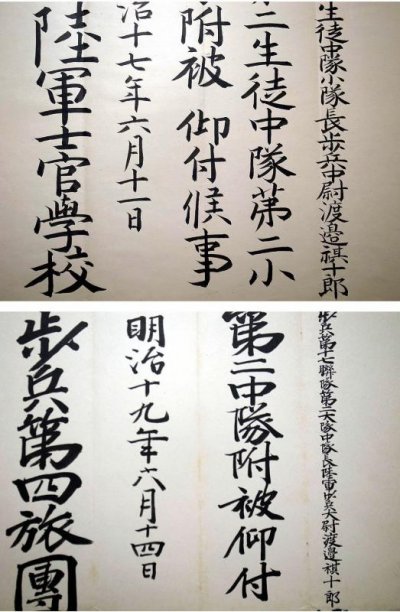 生徒中隊小隊長歩兵中尉渡邊祺十郎
二生徒中隊第二小
附被 仰付候事
治十七年六月十一日
陸軍士官學校
歩兵第十七聯隊第二大隊中隊長陸軍歩兵大尉渡邊祺十郎
第二中隊附被仰付
明治十九年六月十四日
歩兵第四旅團